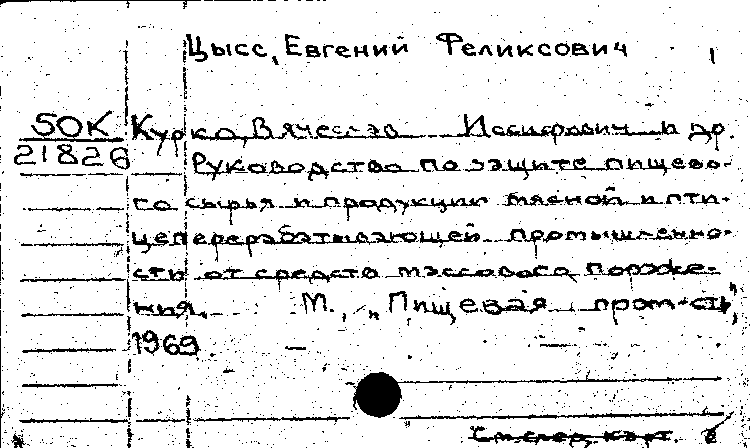 Цысс, Евгений Феликсович 1
50К Курко, Вячеслав Иосифович и др.
21826 Руководство по защите пищево-
го сырья и продукции мясной и пти-
цеперерабатывающей промышленно-
сти от средств массового пораже-
ния. М., „Пищевая пром-сть",
1969.
См. след. карт.